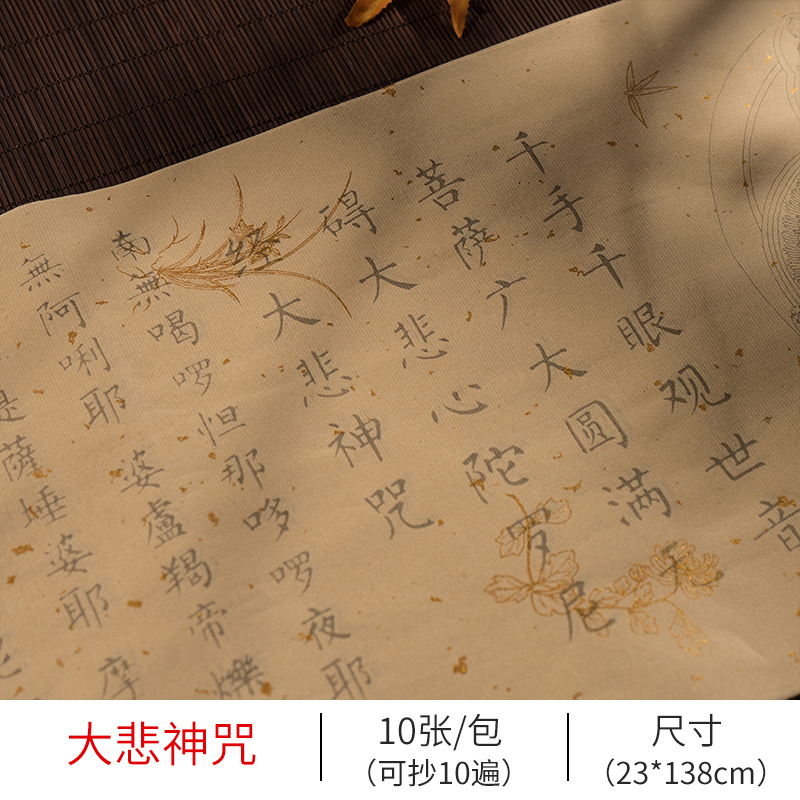 千手千眼观世音
菩萨广大圆满无
碍大悲心陀罗尼
经大悲神咒
南無喝啰怛那哆啰夜耶
無阿唎耶 婆盧羯帝爍
是薩埵婆耶 摩
大悲神咒
10张/包
（可抄10遍）
尺寸
（23*138cm）